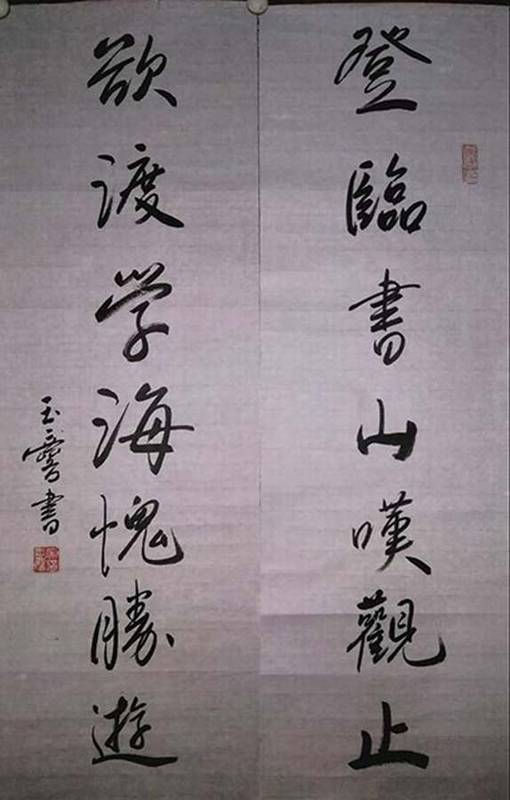 登臨書山嘆觀止
欲渡学海愧勝遊
玉
書